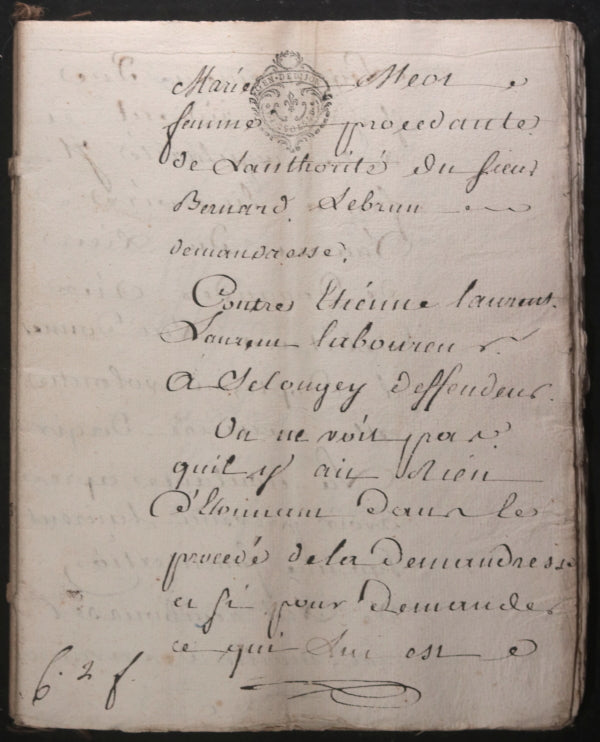 Marie Meot
femme procedante
de Lauthorité du sieur
Bernard Lebrun
demanderesse.
Contre Etienne laurent
Laurent laboureur
A Selongey deffendeur.
On ne voit pas
quil y ait Rien
d'Etonnant dans le
procedé de la demandresse
et si pour demander
ce qui Lui est
6. 2 f.